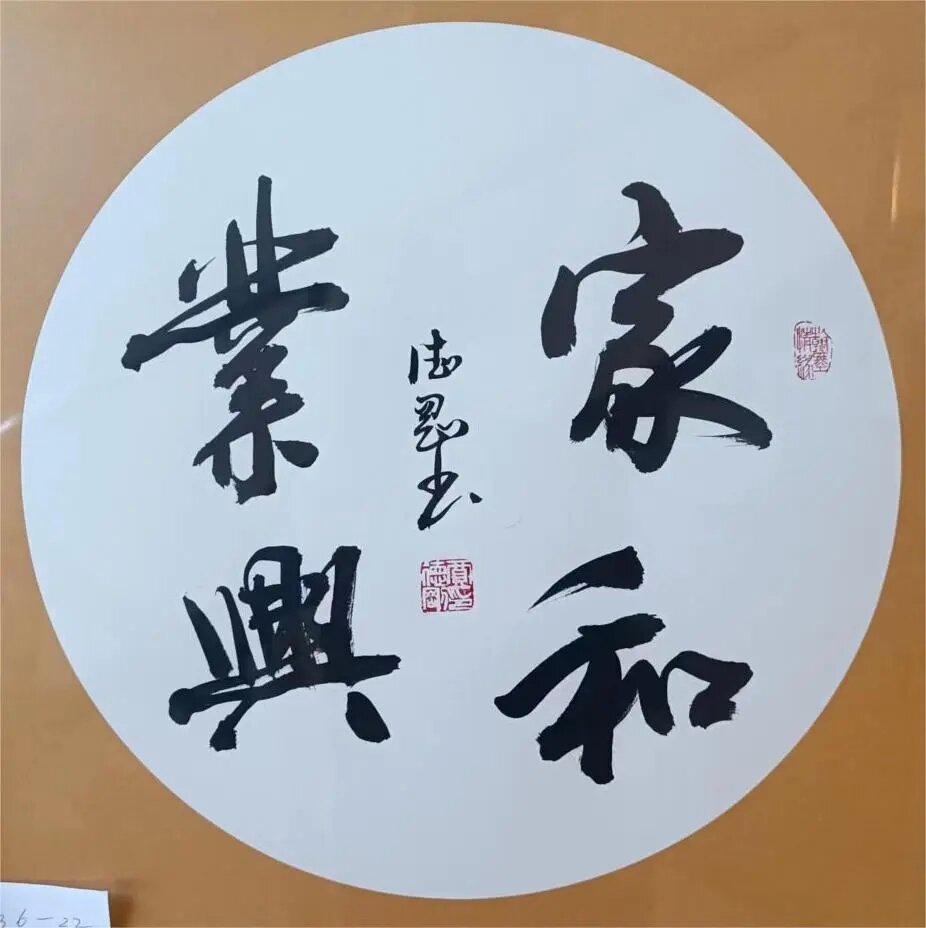 家和
業興
德书
36-22